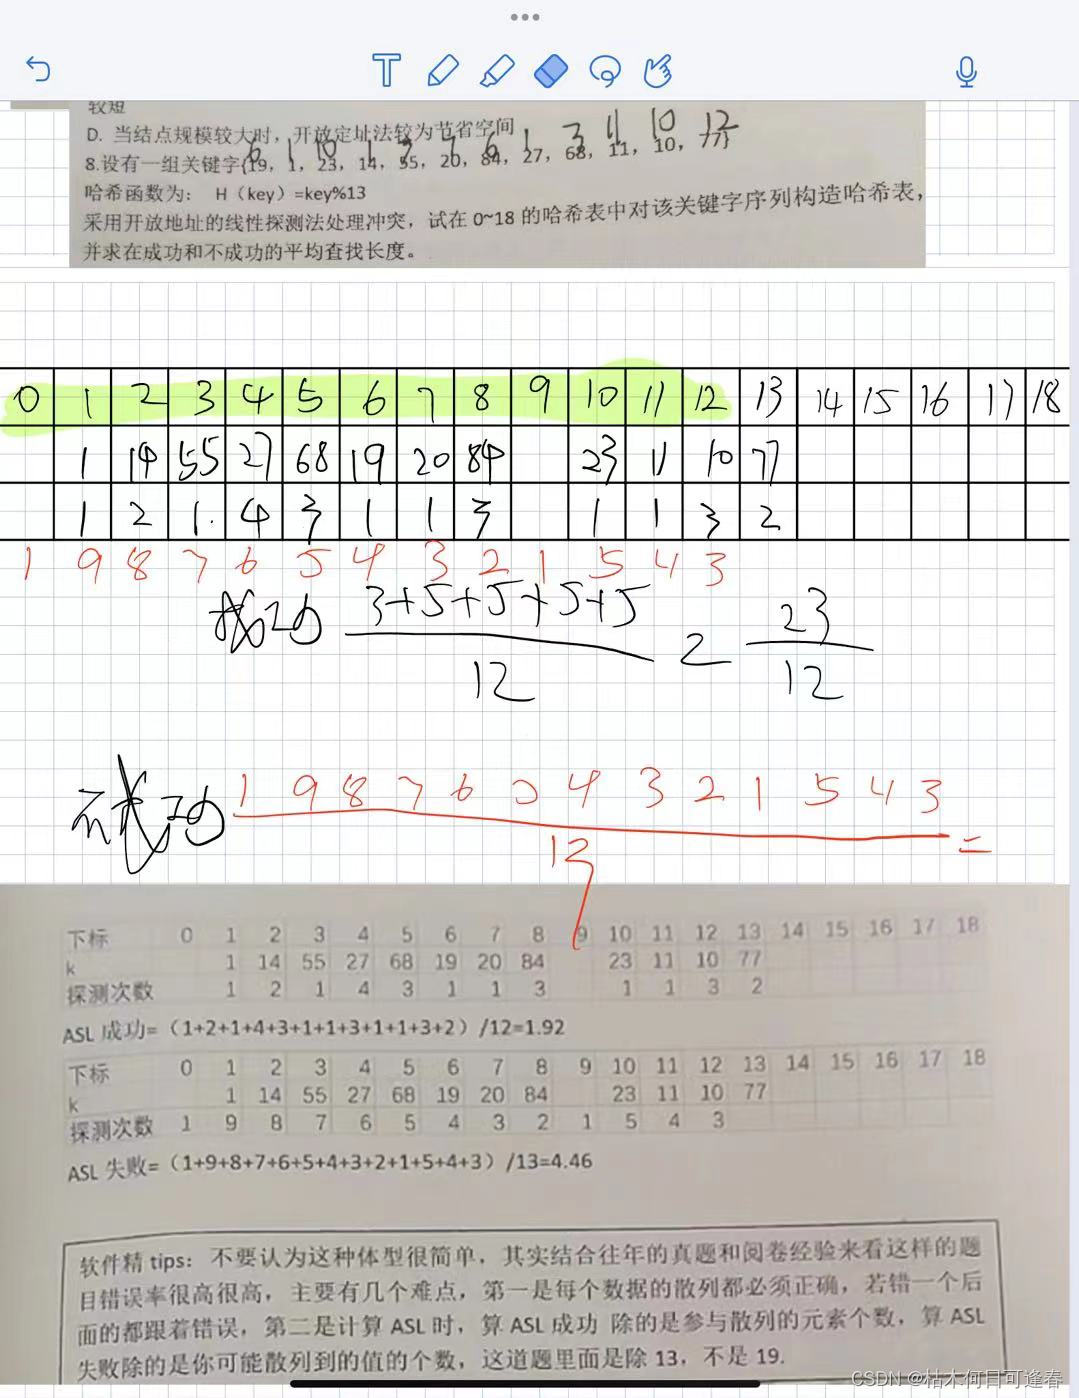 较短
D. 当结点规模较大时，开放定址法较为节省空间
6 1 10 1 3 7 6 1 3 11 10 12
8.设有一组关键字{19，1，23，14，55，20，84，27，68，11，10，77}
哈希函数为： H（key）=key%13
采用开放地址的线性探测法处理冲突，试在 0~18 的哈希表中对该关键字序列构造哈希表，
并求在成功和不成功的平均查找长度。
0 1 2 3 4 5 6 7 8 9 10 11 12 13 14 15 16 17 18
1 14 55 27 68 19 20 84 23 11 10 77
1 2 1. 4 3 1 1 3 1 1 3 2
1 9 8 7 6 5 4 3 2 1 5 4 3
成功 3+5+5+5+5 = 23
12 12
不成功 1 9 8 7 6 5 4 3 2 1 5 4 3 =
13
下标 0 1 2 3 4 5 6 7 8 9 10 11 12 13 14 15 16 17 18
k 1 14 55 27 68 19 20 84 23 11 10 77
探测次数 1 2 1 4 3 1 1 3 1 1 3 2
ASL 成功=（1+2+1+4+3+1+1+3+1+1+3+2）/12=1.92
下标 0 1 2 3 4 5 6 7 8 9 10 11 12 13 14 15 16 17 18
k 1 14 55 27 68 19 20 84 23 11 10 77
探测次数 1 9 8 7 6 5 4 3 2 1 5 4 3
ASL 失败=（1+9+8+7+6+5+4+3+2+1+5+4+3）/13=4.46
软件精 tips： 不要认为这种体型很简单，其实结合往年的真题和阅卷经验来看这样的题
目错误率很高很高，主要有几个难点，第一是每个数据的散列都必须正确，若错一个后
面的都跟着错误，第二是计算 ASL 时，算 ASL 成功 除的是参与散列的元素个数，算 ASL
失败除的是你可能散列到的值的个数，这道题里面是除 13，不是 19.
CSDN @枯木何日可逢春